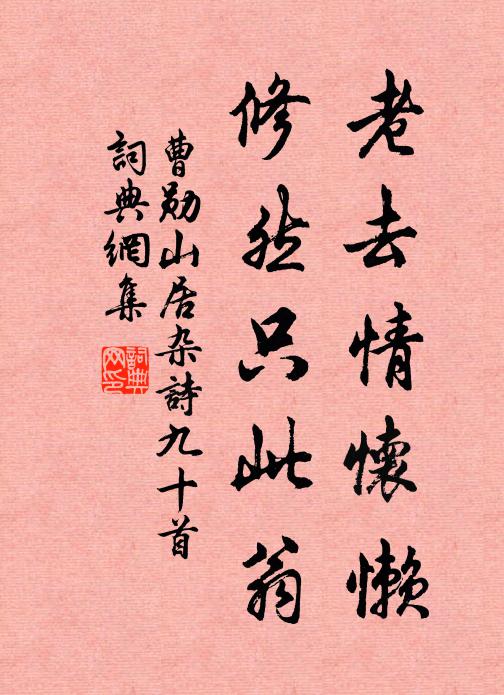 老去情懷懒
修然只此翁
曹勋山居杂詩九十首
詞典網集
詞典网印